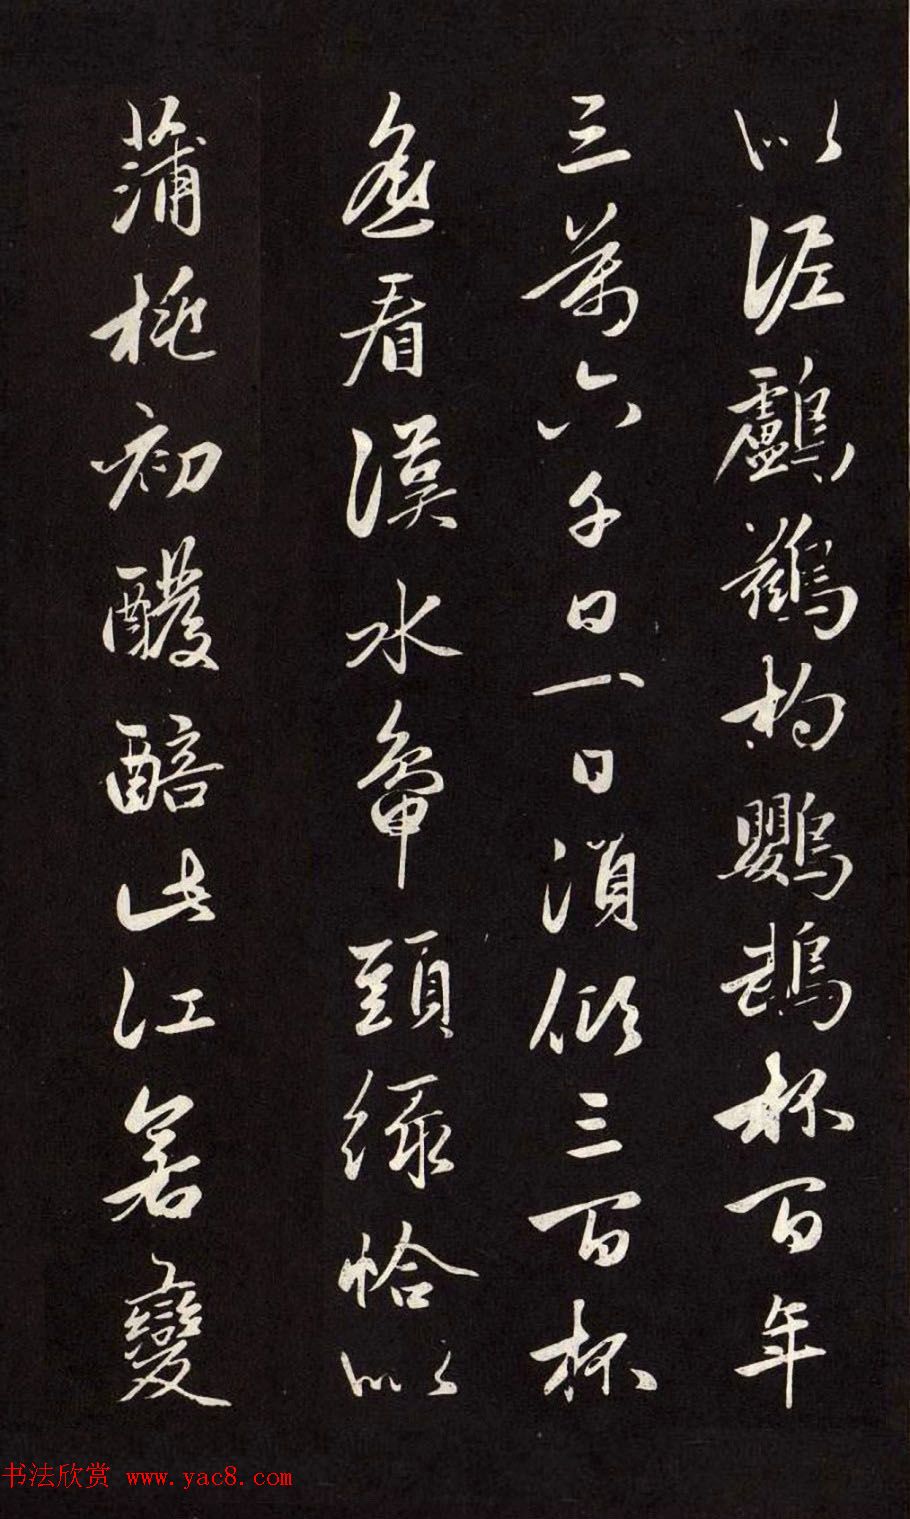 似泥鸕鷀杓鸚鵡杯百年
三萬六千日一日須傾三百杯
遙看漢水鴨頭綠恰似
蒲桃初醱醅此江若變
书法欣赏 www.yac8.com